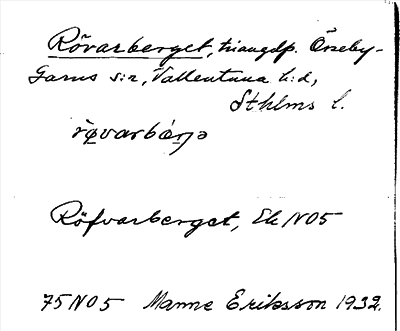 Rövarberget, triangdp. Össeby-
Garns s:n, Vallentuna h:d,
Sthlms l.
Röfvarberget, Ek N05
75 N05 Manne Eriksson 1932.